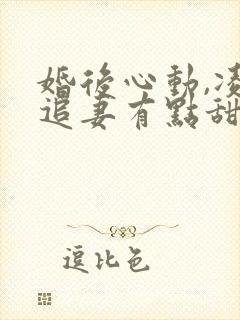 婚後心動,凌
追妻有點甜
逗比色